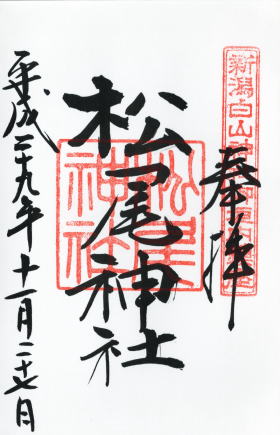 奉拝
松尾神社
平成二十九年十一月二十七日
松尾神社
新潟白山神社